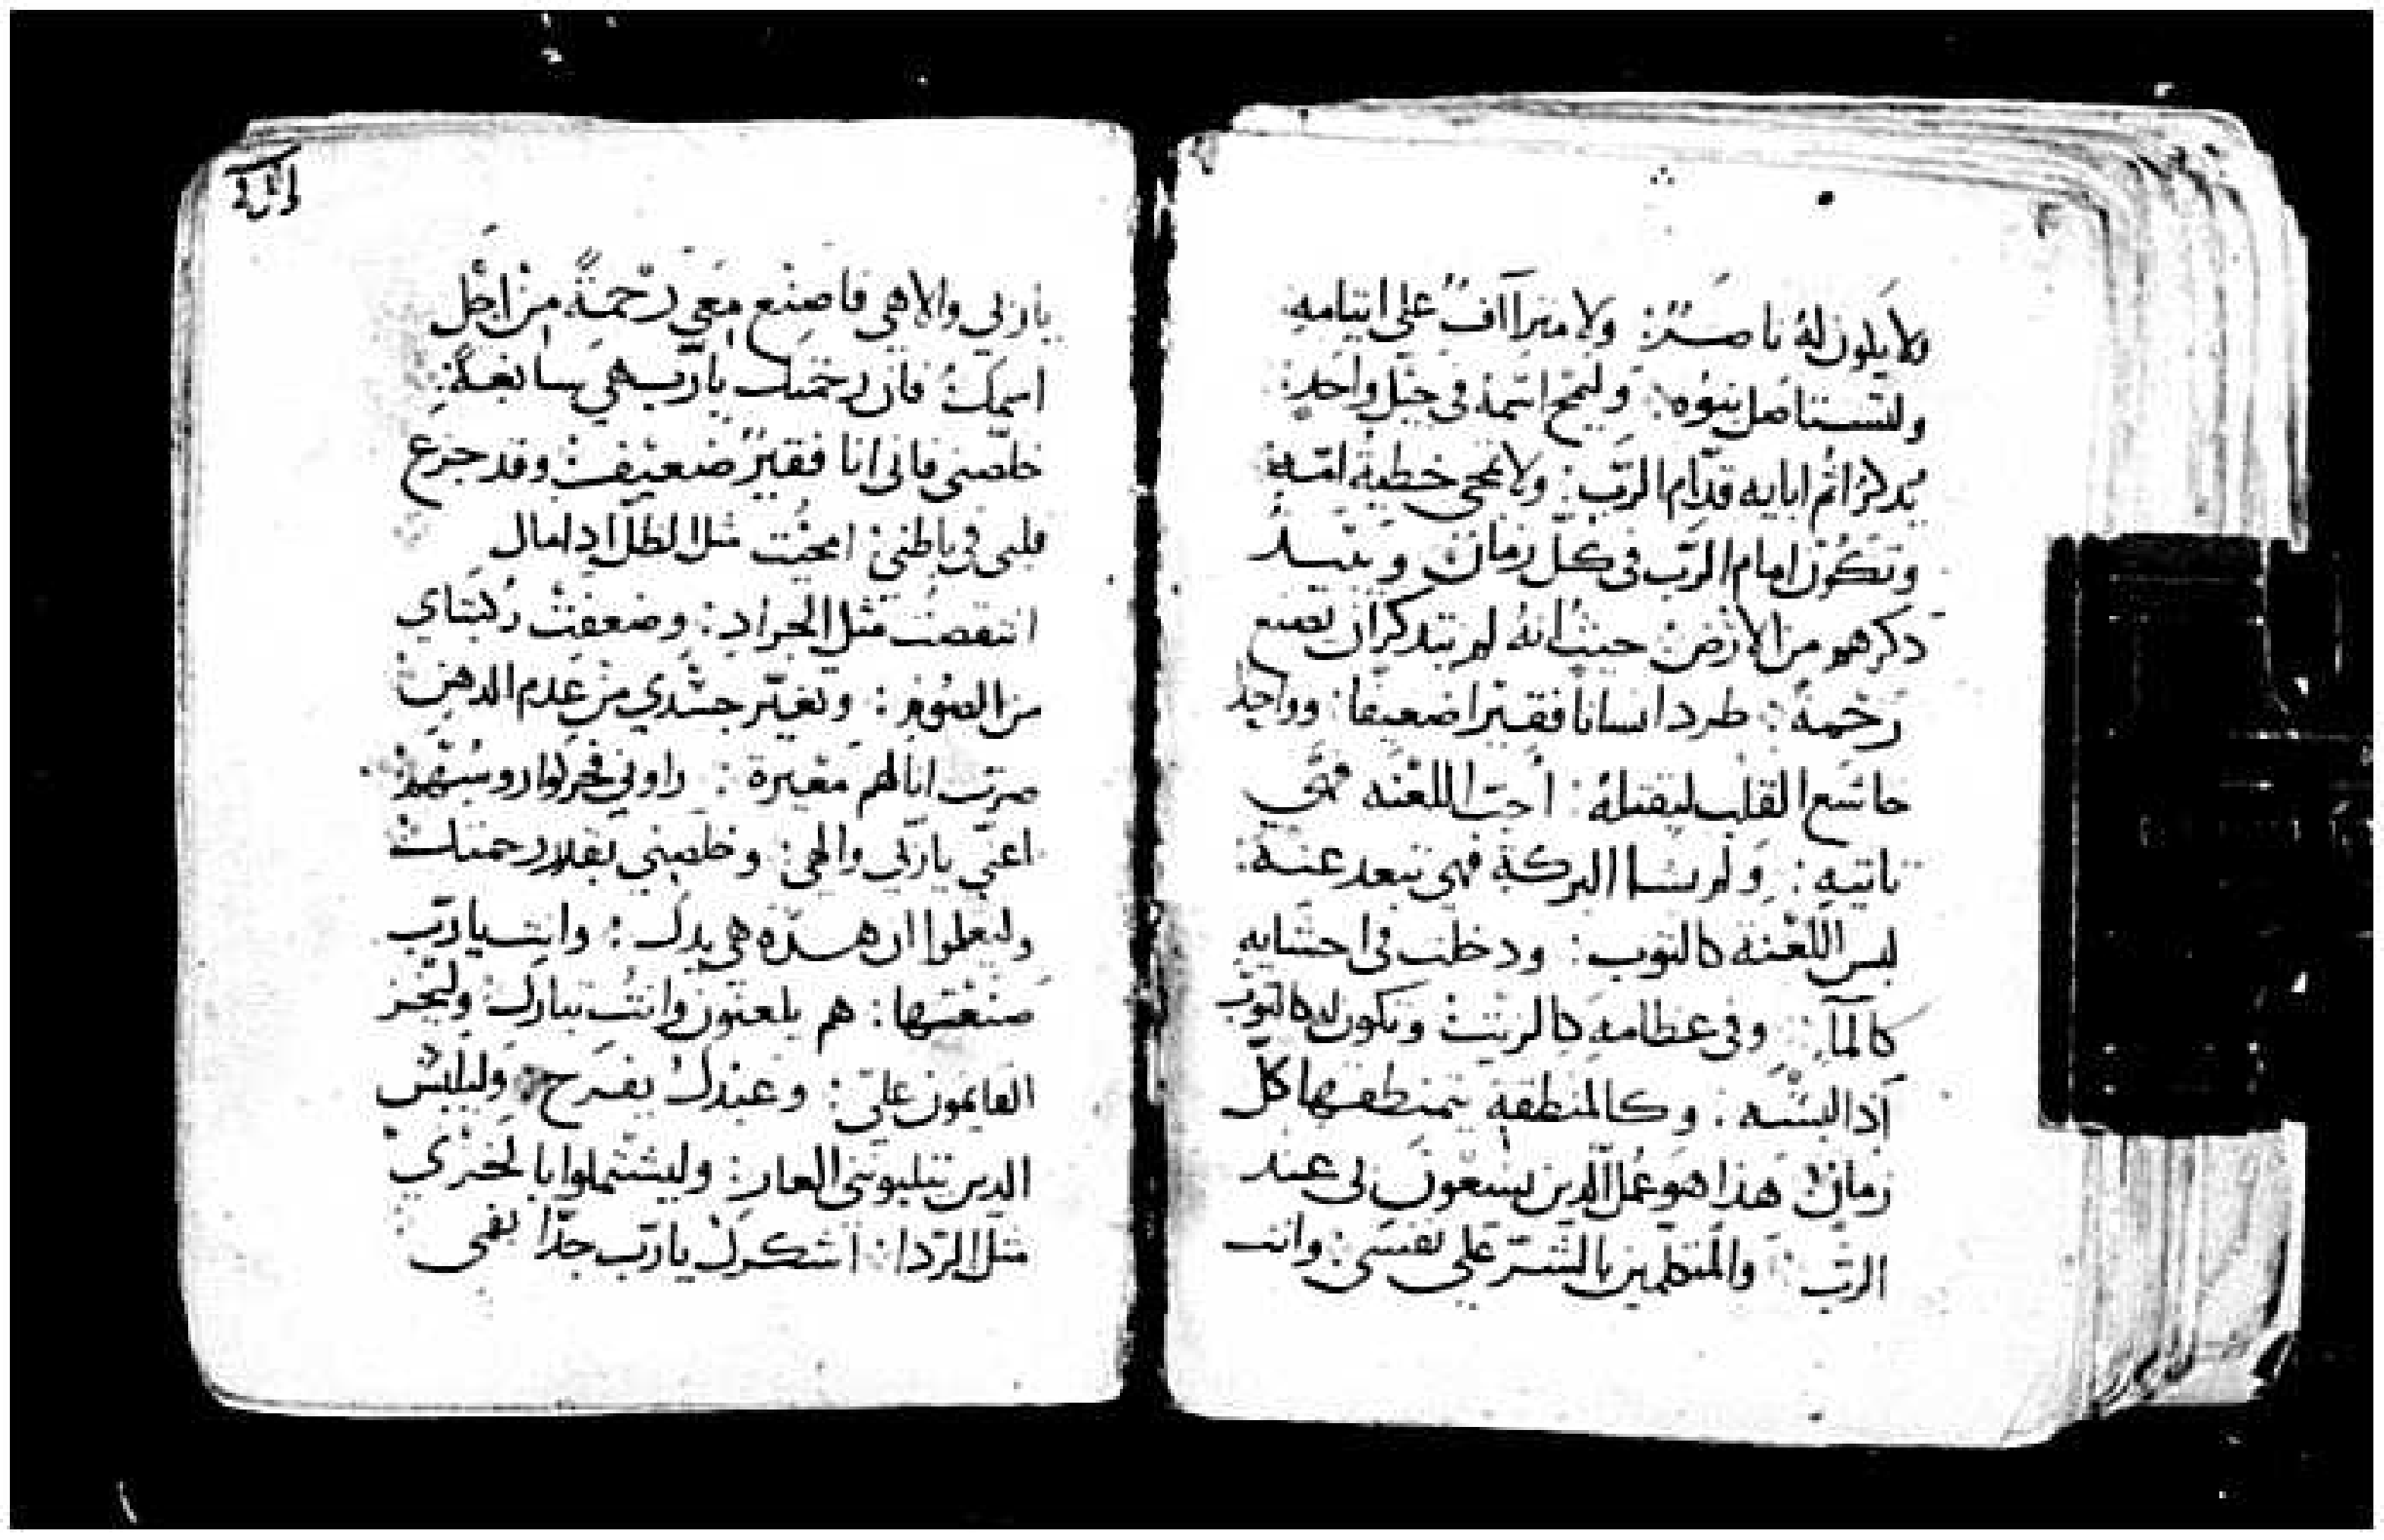 ولا يكون له ناصرٌ: ولا متراآفٌ على ايتامه
ولتستاصل بنوه: وليمح اسمه في جيل واحدٍ:
يدكر اثم ابايه قدّام الربّ: ولا تمحى خطية امّه
وتكون امام الربّ في كلّ زمان وينبيد
دكرهم من الأرض: حيث انهُ لم يتدكر ان يصنع
رَحْمةً: طرد انسانا فقيرا ضعيفا: وواجد
خاشع القلب ليقتلهُ: أحبّ اللعْنه فهي
تاتيهِ: ولم يشا البركة فهي تبعد عنه:
لبس اللعْنة كالتوب: ودخلت في احشايه
كالمآ: وفي عظامه كالزيت وتكون له كالتوب
آذا لبسْه: وكالمنطقة يتمنطق بها كل
زمان: هذا هو عمل الدين يسعون لي عند
الربّ: والمتكلمين بالشّر على نفسي: وانت
يا ربي والاهي فاصنع معي رحمةً من اجل
اسمك: فان رحمتك يا ربّ هي سابغة:
خلصني فاني انا فقيرٌ ضعيف: وقد جزع
قلبي في باطني: امحيت متل الظل ادا مال
انتفضت متل الجراد: وضعفت ركبتاي
من الصوم: وتغيّر جسْدي من عدم الدهن
صرت انا لهم معيرة: راوني فحركوا روسهم
اعنّي يا ربي والهي: وخلصني بقدر رحمتك
وليعلموا ان هده هي يدك: وانت يا ربّ
صنعتها: هم يلعنون وانت تبارك: وليخز
القايمون عليّ: وعبدك يفرح: وليلبس
الدين يتلبونني العار: وليشتملوا بالخزي
متل الردا: اشكرك يا ربّ جدّا بفمي